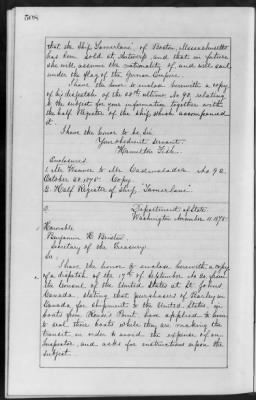 that the Ship "Tamerlane", of Boston, Massachusetts
has been sold at Antwerp and that in future
she will assume the nationality of, and will sail
under the flag of the German Empire.
I have the honor to enclose herewith a copy
of his despatch of the 28th ultimo, No 90, relating
to the subject for your information together with
the half Register of the ship which accompanied
it.
I have the honor to be Sir
Your obedient servant.
Hamilton Fish.
Enclosures
1. Mr Weaver to Mr Cadwalader No 90
October 28, 1875. Copy.
2. Half Register of Ship "Tamerlane".
Department of State
Washington November 11. 1875.
Honorable
Benjamin H. Bristow
Secretary of the Treasury
Sir:
I have the honor to enclose herewith a copy
of a despatch of the 17th of September No 20, from
the Consul of the United States at St. Johns
Canada, stating that purchasers of Barley in
Canada for shipment to the United States, in
boats from Rouse's Point have applied to him
to seal these boats while they are making the
transit in order to avoid the expense of an
Inspector, and asks for instructions upon the
subject.